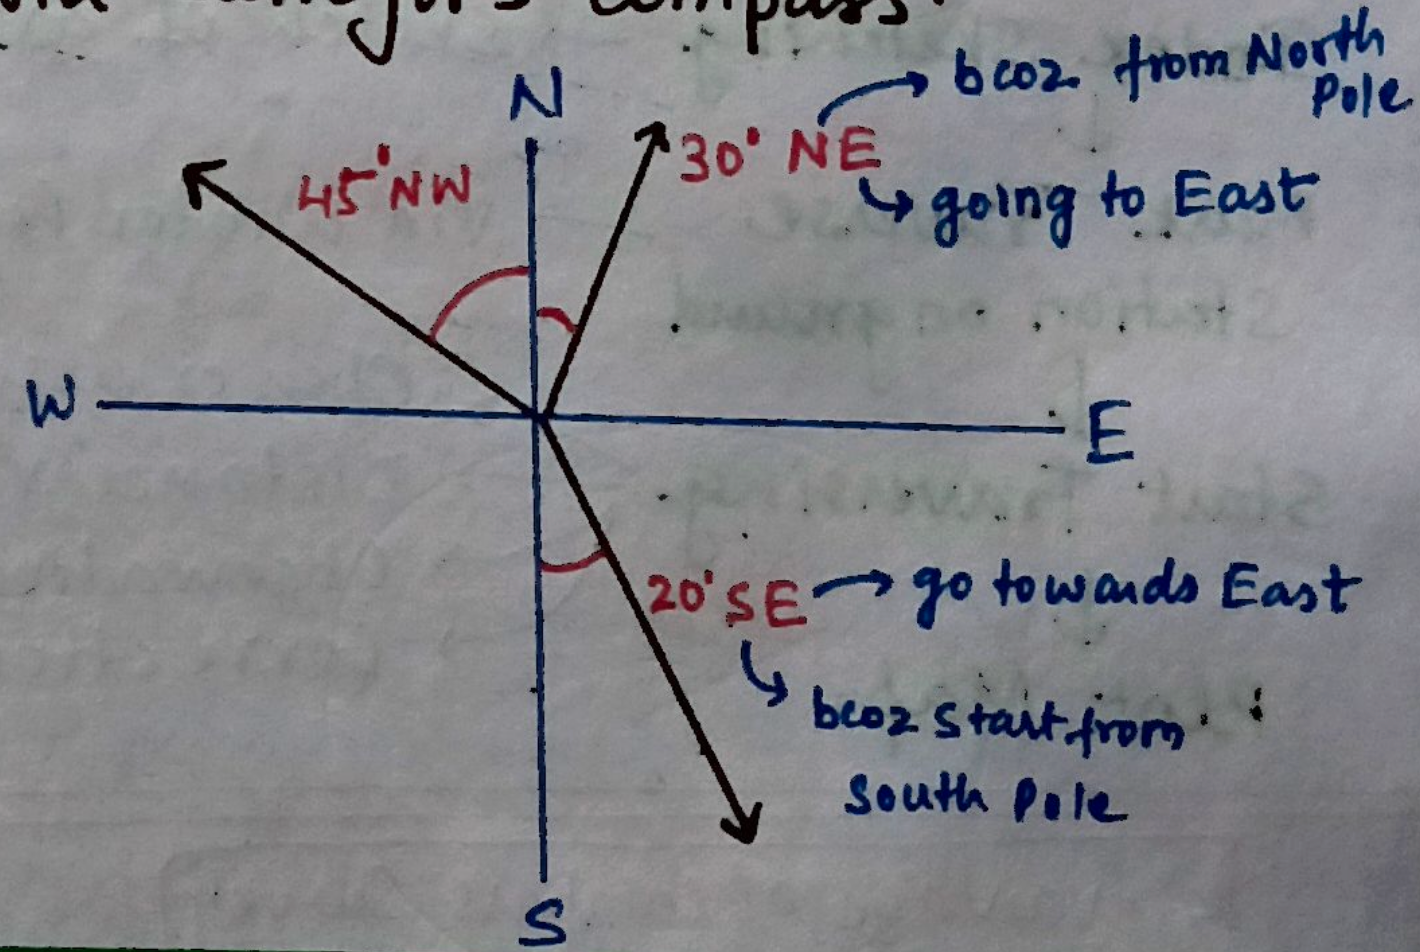 compass
N
bcoz from North
Pole
45° NW
30° NE
going to East
W
E
20° SE
go towards East
bcoz start from
South Pole
S